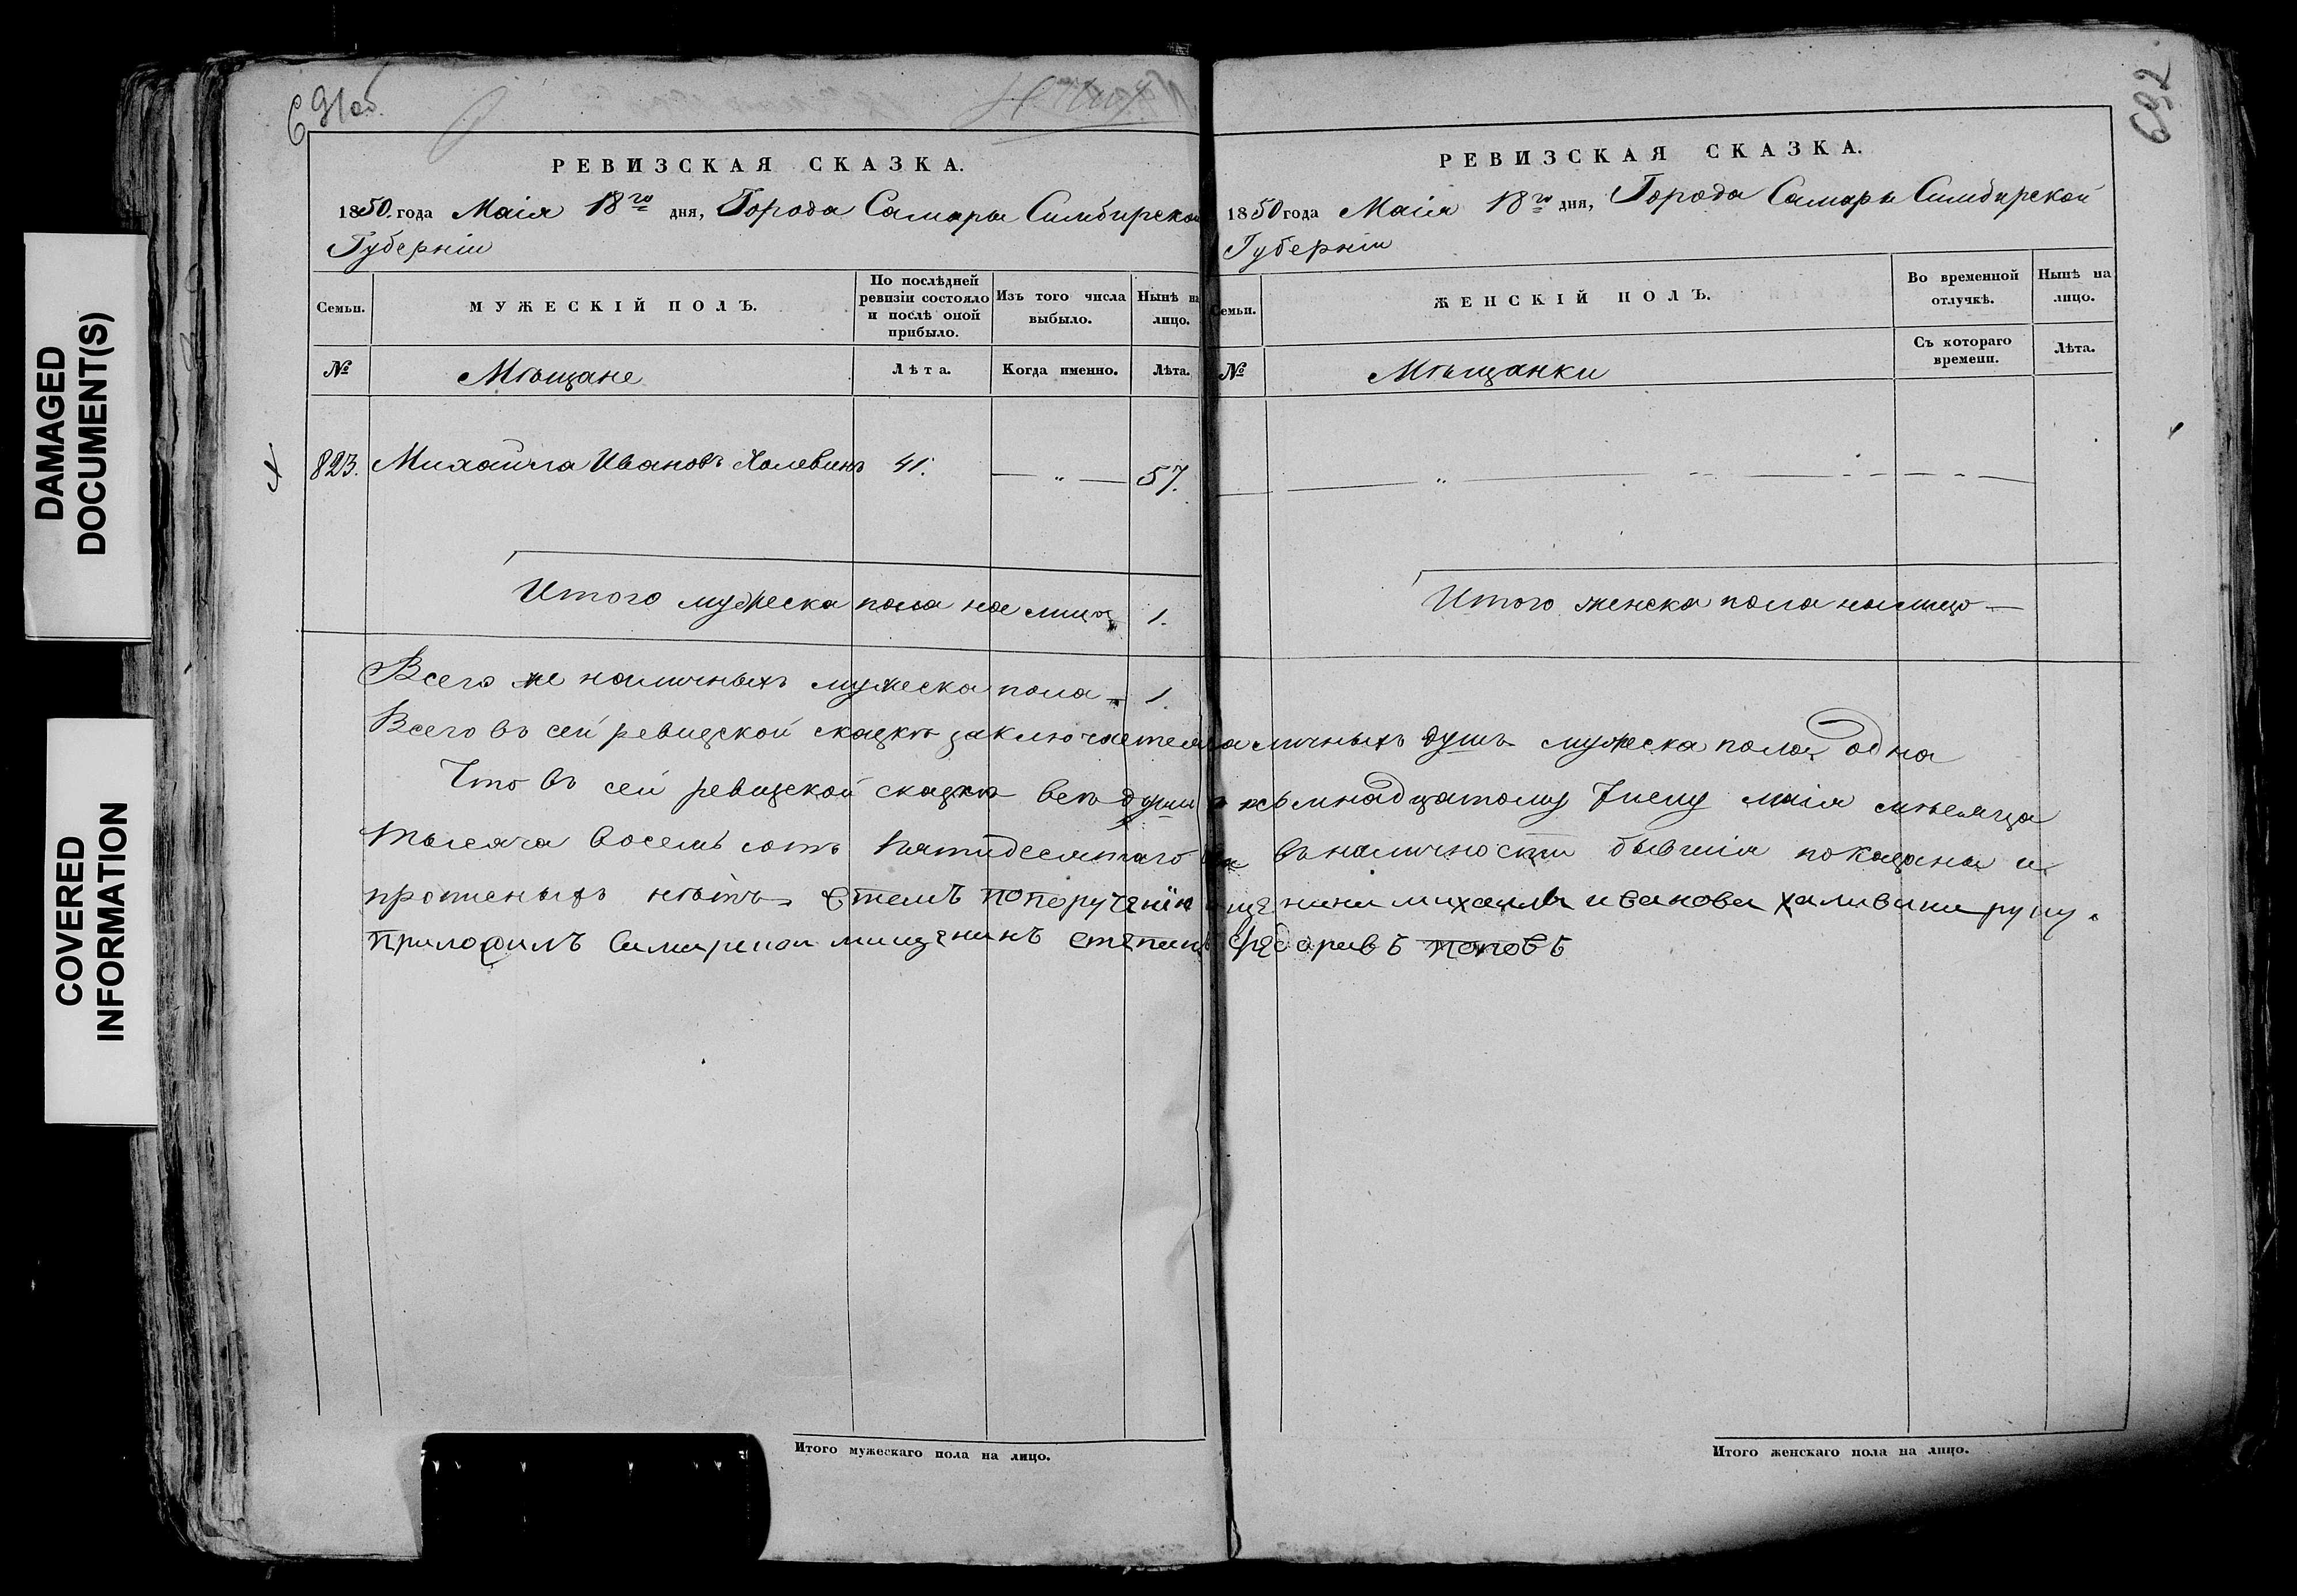 DAMAGED
DOCUMENT(S)
COVERED
INFORMATION
691об.
РЕВИЗСКАЯ СКАЗКА.
1850. года Маія 18го дня, Города Самары Симбирской
Губерніи
Семьи.
МУЖЕСКІЙ ПОЛЪ.
По послѣдней
ревизіи состояло
и послѣ оной
прибыло.
Изъ того числа
выбыло.
Нынѣ на
лицо.
№
Мѣщане
Лѣта.
Когда именно.
Лѣта.
823.
Михайла Ивановъ Халевинъ
41.
— „ —
57.
Итого мужеска пола на лицо 1.
Всего же наличныхъ мужеска пола — 1.
692
РЕВИЗСКАЯ СКАЗКА.
1850 года Маія 18го дня, Города Самары Симбирской
Губерніи
Семьи.
ЖЕНСКІЙ ПОЛЪ.
Во временной
отлучкѣ.
Нынѣ на
лицо.
№
Мѣщанки
Съ котораго
времени.
Лѣта.
Итого женска пола налицо —
Всего въ сей ревизской сказкѣ заключается наличныхъ душъ мужеска пола одна
Что въ сей ревизской сказкѣ всѣ души къ осьмнадцатому числу маія мѣсяца
тысяча восемь сотъ пятидесятаго въ наличности бывшія показаны и
прописныхъ нѣтъ. Къ тому по порученію мещенина михаилы иванова халивина руку
приложилъ самарскои мищенинъ степанъ федоравъ поповъ
Итого мужескаго пола на лицо.
Итого женскаго пола на лицо.